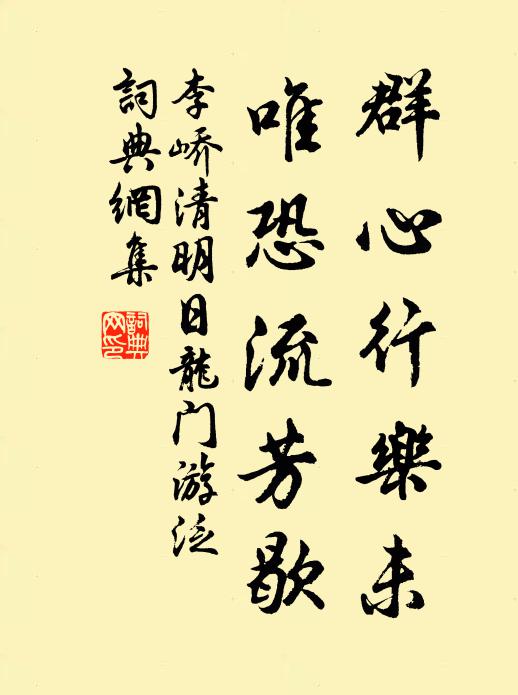 群心行樂未
唯恐流芳歇
李嶠清明日龍门游泛
詞典網集
詞典网印